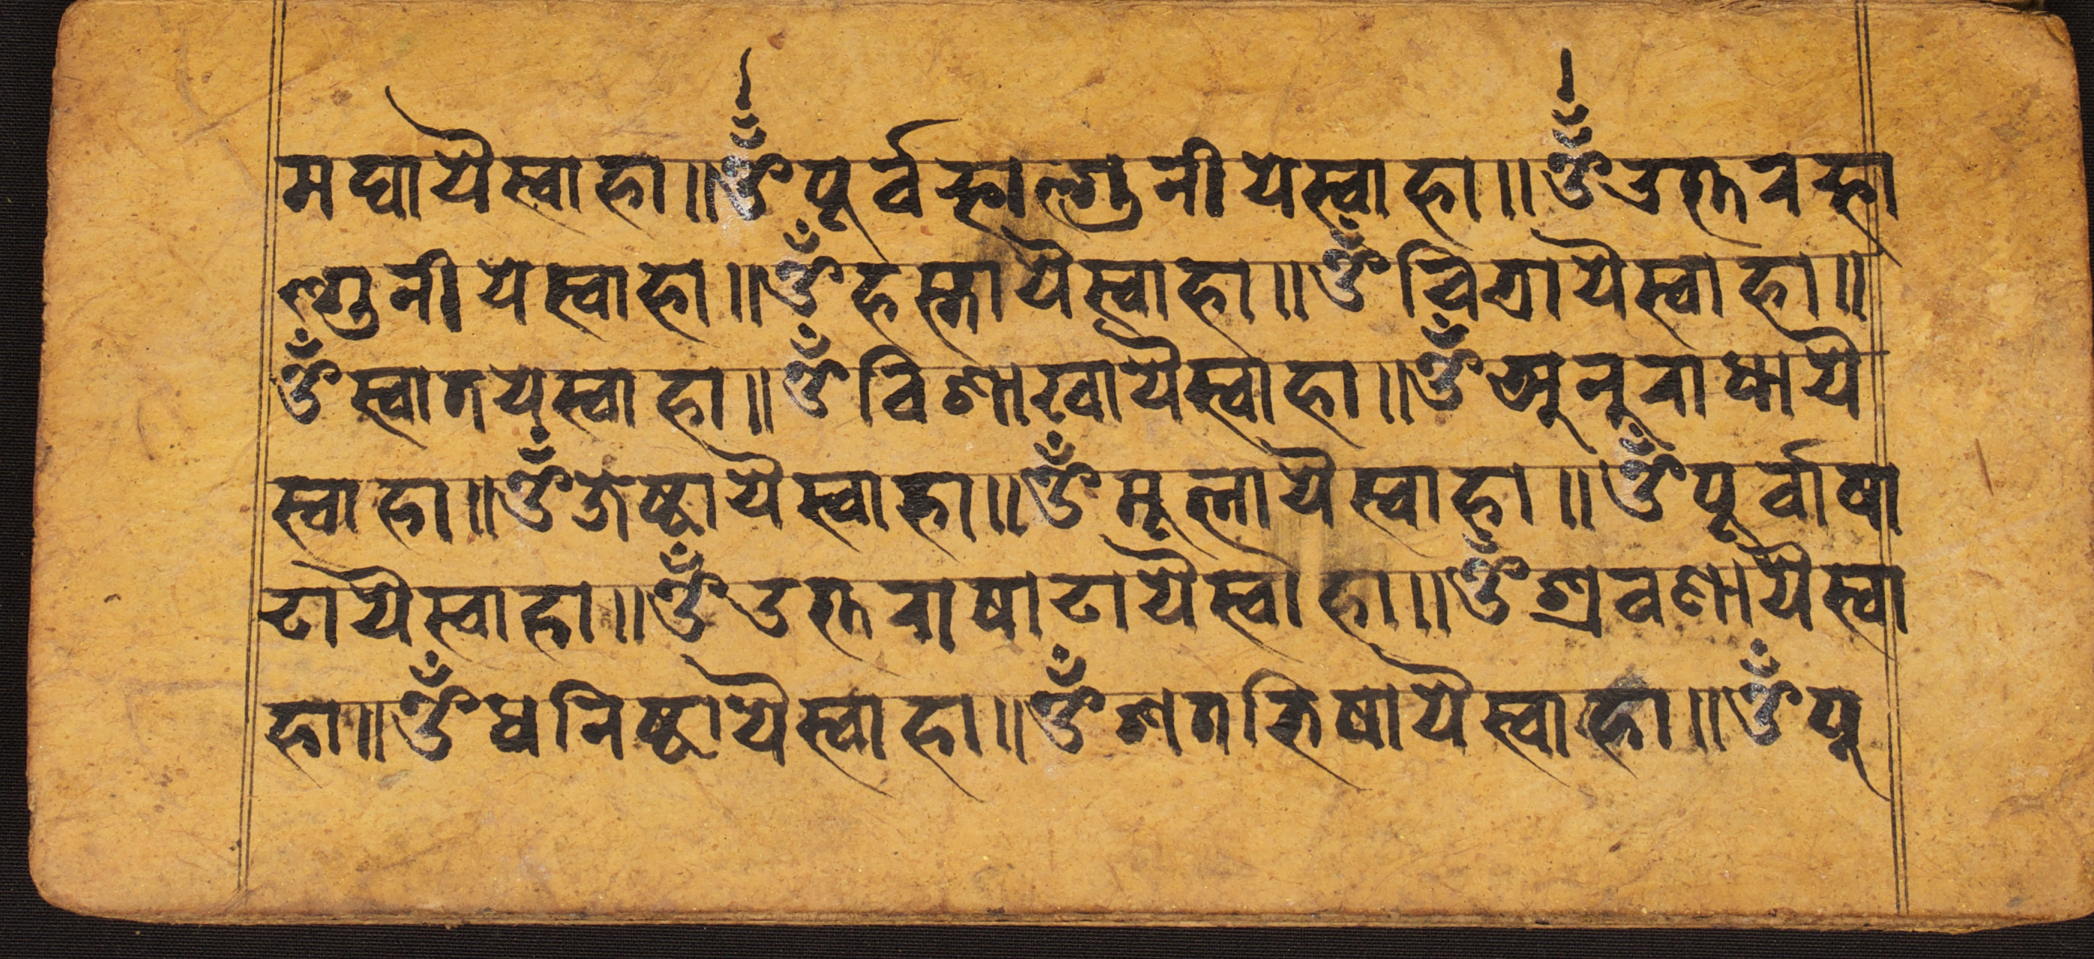 मघायैस्वाहा॥ॐपूर्वफाल्गुनीयेस्वाहा॥ॐउत्तरफा
ल्गुनीयेस्वाहा॥ॐहस्तायैस्वाहा॥ॐचित्रायैस्वाहा॥
ॐस्वातयेस्वाहा॥ॐविशाखायैस्वाहा॥ॐअनुराधायै
स्वाहा॥ॐजेष्ठायैस्वाहा॥ॐमूलायैस्वाहा॥ॐपूर्वाषा
ढायैस्वाहा॥ॐउत्तराषाढायैस्वाहा॥ॐश्रवणायैस्वा
हा॥ॐधनिष्ठायैस्वाहा॥ॐशतभिषायैस्वाहा॥ॐपू